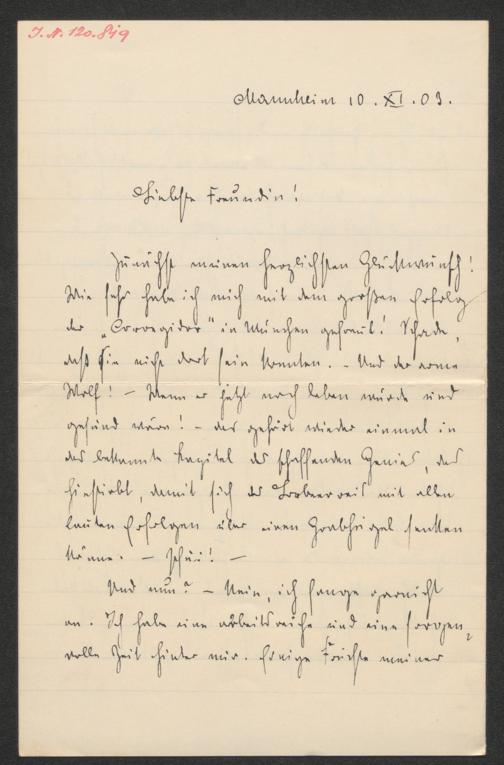 I. N. 120.849
Mannheim 10. XI. 03.
Liebste Freundin!
Zunächst meinen herzlichsten Glückwunsch!
Wie sehr habe ich mich mit dem großen Erfolg
des „Corregidor" in München gefreut! Schade,
daß Sie nicht dort sein konnten. – Und der arme
Wolf! – Wenn er jetzt noch leben würde und
gesund wäre! – das gehört wieder einmal in
das bekannte Kapitel des schaffenden Genies, das
hinstirbt, damit sich der Lorbeerreis mit allen
lauten Erfolgen über einen Grabhügel senken
könne. – –
Und nun? – Nein, ich fange garnicht
an. Ich habe eine arbeitsreiche und eine sorgen,
volle Zeit hinter mir. Einige Früchte meiner